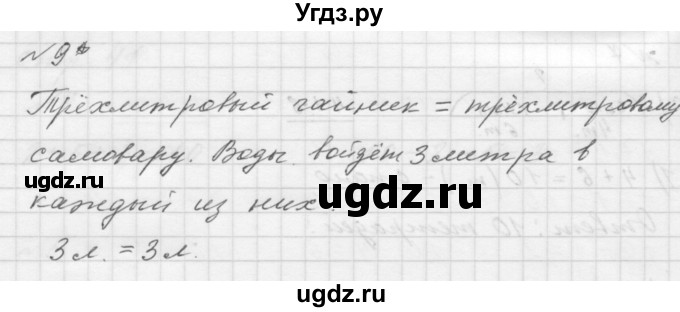 Угдз.ру
№9*
Трёхлитровый чайник = трёхлитровому
самовару. Воды войдёт 3 литра в
каждый из них.
3 л. = 3 л.
ugdz.ru
ugdz.ru
ugdz.ru
ugdz.ru